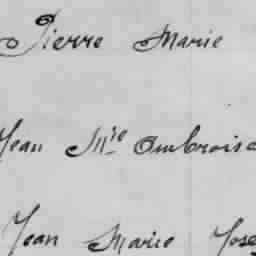 Pierre Marie
Jean Mre Ambroise
Jean Marie Jose